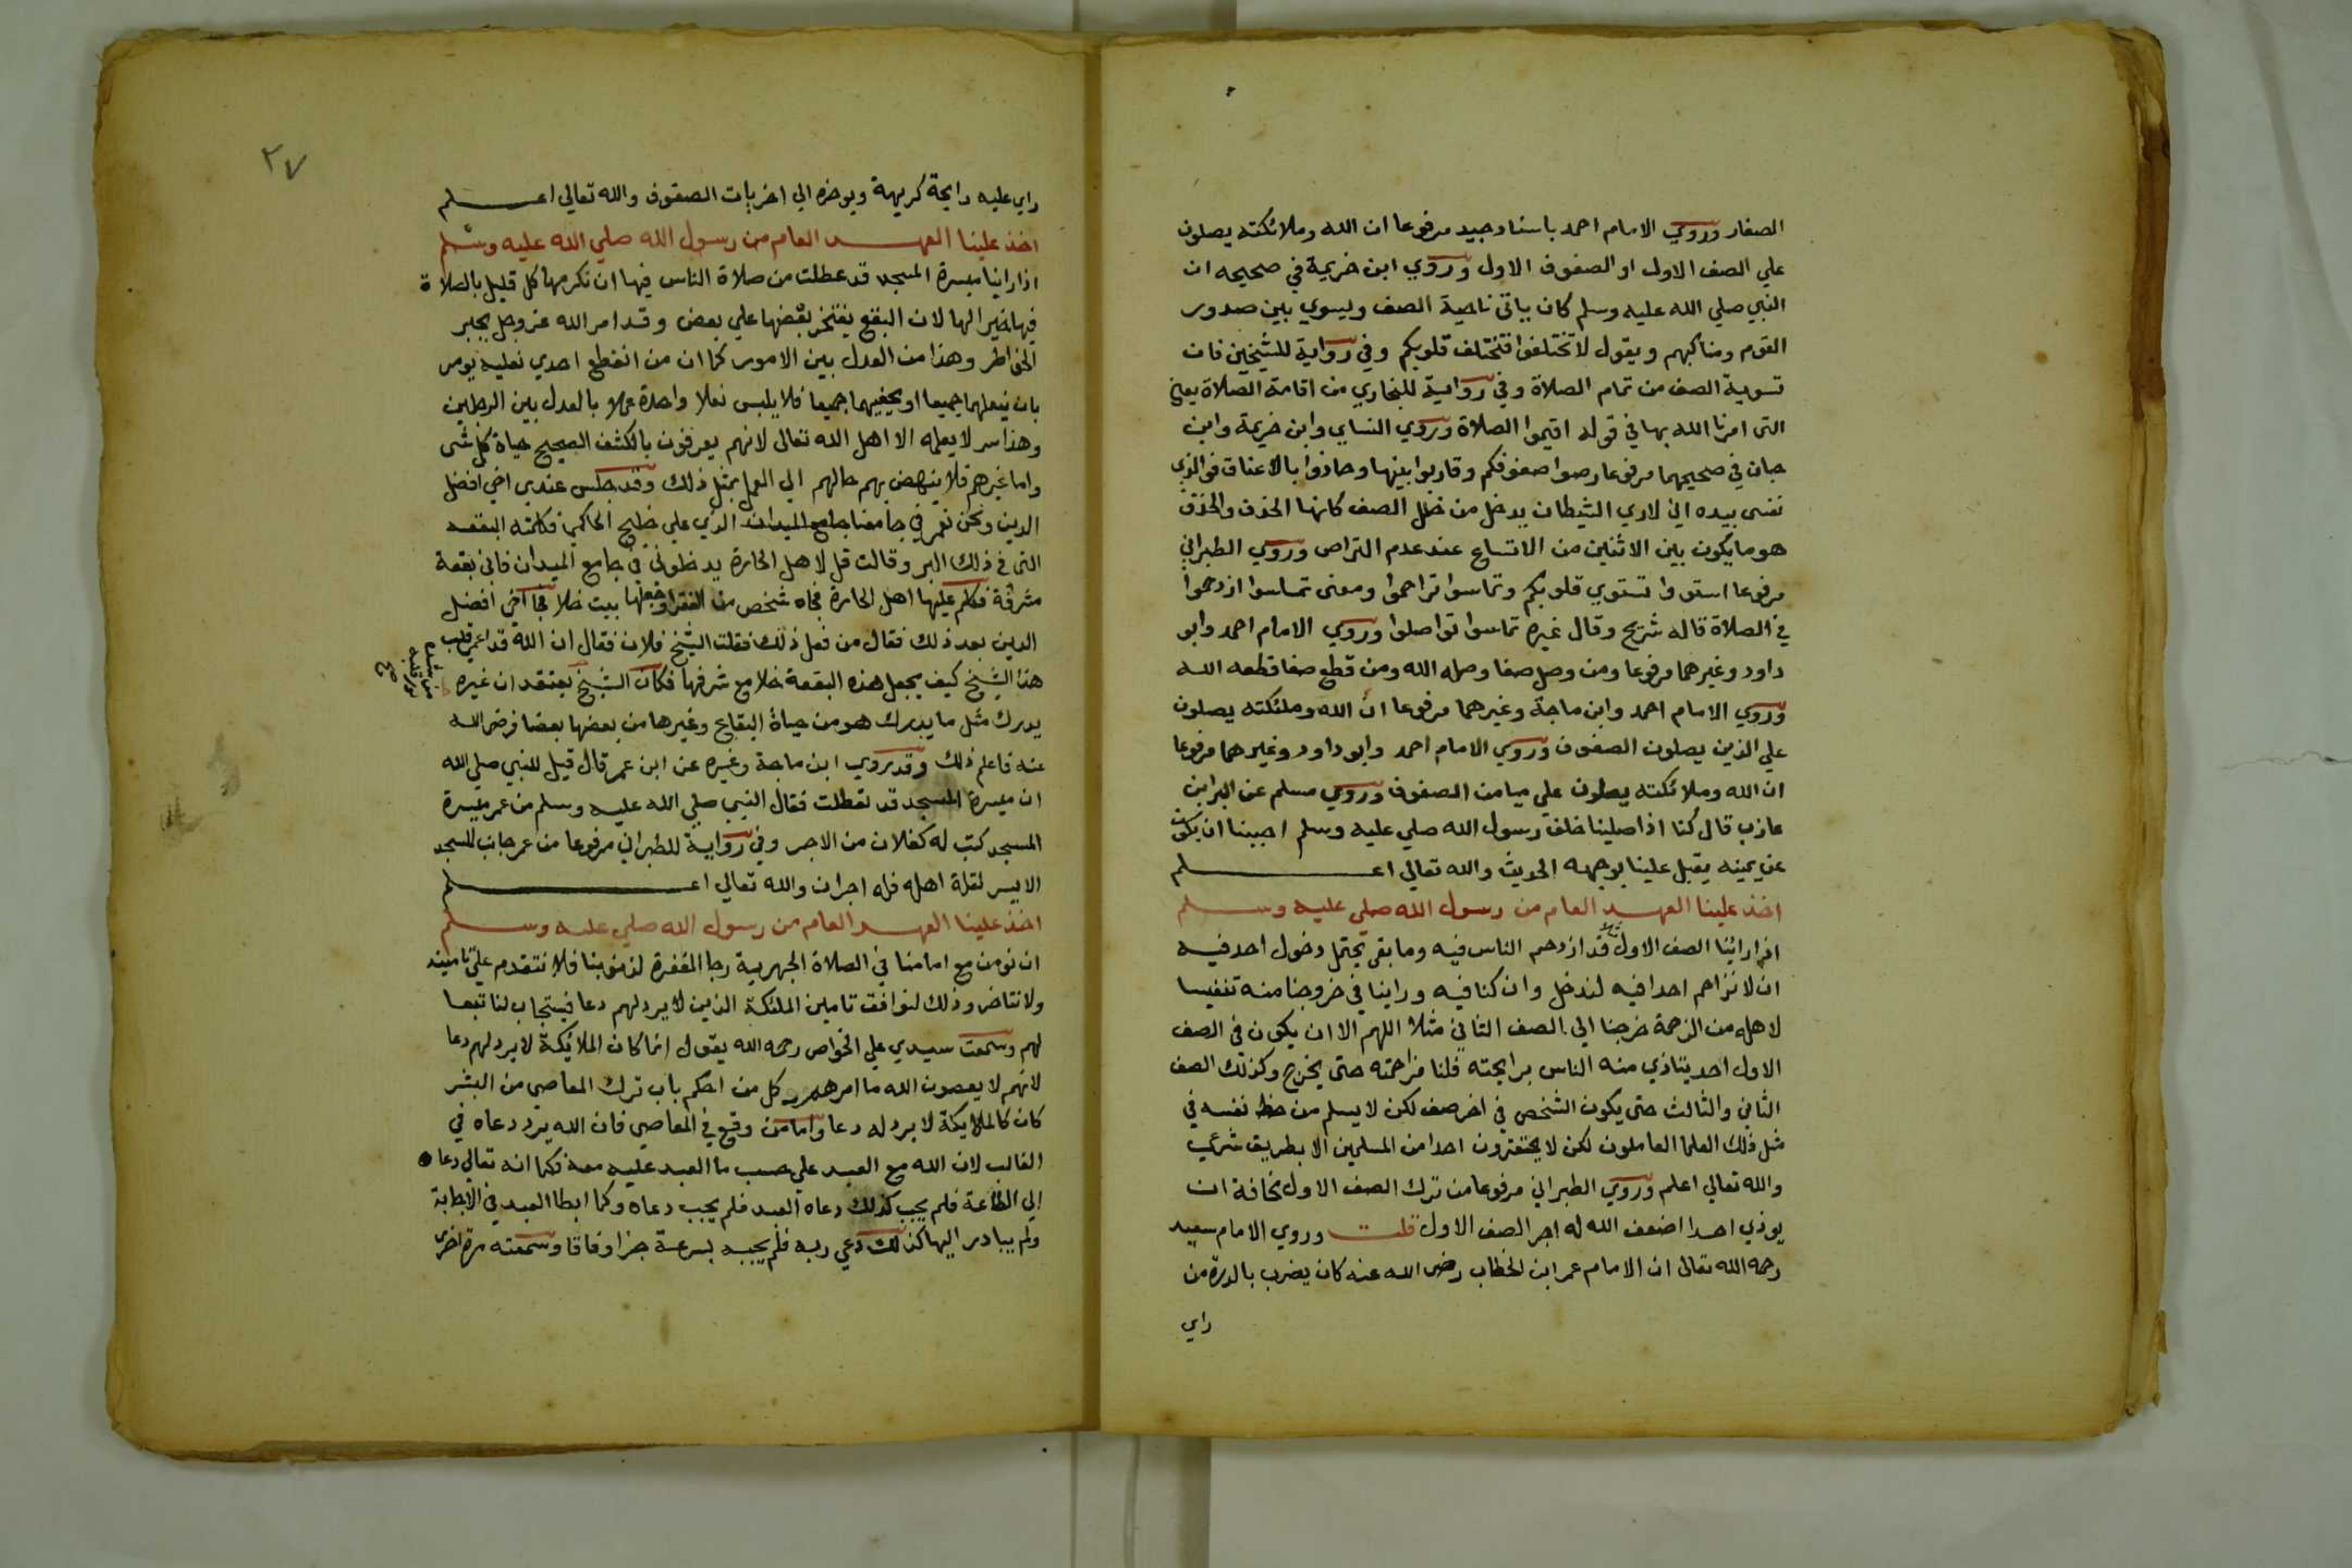 الصغار وروي الامام احمد باسناد جيد مرفوعا ان الله وملائكته يصلون
علي الصف الاول او الصفوف الاول وروي ابن خزيمة في صحيحه ان
النبي صلي الله عليه وسلم كان ياتي ناحية الصف ويسوي بين صدور
القوم ومناكبهم ويقول لا تختلفوا فتختلف قلوبكم وفي رواية للشيخين فان
تسوية الصف من تمام الصلاة وفي رواية للبخاري من اقامة الصلاة يعني
التي امرنا الله بها في قوله اقيموا الصلاة وروي النساي وابن خزيمة وابن
حبان في صحيحهما مرفوعا رصوا صفوفكم وقاربوا بينها وحاذوا بالاعناق فوالذي
نفسي بيده اني لاري الشيطان يدخل من خلل الصف كانها الحذف والحذف
هو ما يكون بين الاثنين من الاتساع عند عدم التراص وروي الطبراني
مرفوعا استووا تستوي قلوبكم وتماسوا تراحموا ومعني تماسوا ازدحموا
في الصلاة قاله شريح وقال غيره تماسوا تواصلوا وروي الامام احمد وابو
داود وغيرهما مرفوعا ومن وصل صفا وصله الله ومن قطع صفا قطعه الله
وروي الامام احمد وابن ماجة وغيرهما مرفوعا ان الله وملئكته يصلون
علي الذين يصلون الصفوف وروي الامام احمد وابو داود وغيرهما مرفوعا
ان الله وملائكته يصلون علي ميامن الصفوف وروي مسلم عن البرا بن
عازب قال كنا اذا صلينا خلف رسول الله صلي عليه وسلم احببنا ان نكون
عن يمينه يقبل علينا بوجهه الحديث والله تعالي اعلم
اخذ علينا العهد العام من رسول الله صلي عليه وسلم
اذا راينا الصف الاول قد ازدحم الناس فيه وما بقي يحتمل دخول احد فيه
ان لا نزاحم احدا فيه لندخل وان كنا فيه وراينا في خروجنا منه تنفيسا
لاهله من الزحمة خرجنا الي الصف الثاني مثلا اللهم الا ان يكون في الصف
الاول احد يتاذي منه الناس برايحته فلنا مزاحمته حتى يخرج وكذلك الصف
الثاني والثالث حتى يكون الشخص في اخر صف لكن لا يسلم من حظ نفسه في
مثل ذلك العلما العاملون لكن لا يحتقرون احدا من المسلمين الا بطريق شرعي
والله تعالي اعلم وروي الطبراني مرفوعا من ترك الصف الاول مخافة ان
يوذي احدا اضعف الله له اجر الصف الاول قلت وروي الامام سعيد
رحمه الله تعالى ان الامام عمر ابن الخطاب رضى الله عنه كان يضرب بالدرة من
راي
٢٧
راي عليه رايحة كريهة ويوخره الي اخريات الصفوف والله تعالي اعلم
اخذ علينا العهد العام من رسول الله صلي الله عليه وسلم
اذا راينا ميسرة المسجد قد عطلت من صلاة الناس فيها ان نكرمها كل قليل بالصلاة
فيها خيرا لها لان البقع يفتخر بعضها علي بعض وقد امر الله عز وجل بجبر
الخواطر وهذا من العدل بين الامور كما ان من انقطع احدي نعليه يومر
بان ينعلهما جميعا او يحفيهما جميعا فلا يلبس نعلا واحدة عملا بالعدل بين الرجلين
وهذا سر لا يعلمه الا اهل الله تعالى لانهم يعرفون بالكشف الصحيح حياة كل شى
واما غيرهم فلا ينهض بهم حالهم الي العمل بمثل ذلك وقد جلس عندي اخي افضل
الدين ونحن نعمر في جامعنا جامع الميدان الذي علي خليج الحاكمي فكلمته البقعه
التي في ذلك البر وقالت قل لاهل الحارة يدخلوني في جامع الميدان فاني بقعة
مشرفة فكلم عليها اهل الحارة فجاه شخص من الفقرا وجعلها بيت خلا فجا اخي افضل
الدين بعد ذلك فقال من فعل ذلك فقلت الشيخ فلان فقال ان الله قد اعمي قلب
هذا الشيخ كيف يجعل هذه البقعة خلا مع شرفها فكان الشيخ يعتقد ان غيره
يدرك مثل ما يدرك هو من حياة البقاع وغيرها من بعضها بعضا فرضي الله
عنه فاعلم ذلك وقد روي ابن ماجة وغيره عن ابن عمر قال قيل للنبي صلي الله
ان ميسرة المسجد قد تعطلت فقال النبي صلي الله عليه وسلم من عمر ميسرة
المسجد كتب له كفلان من الاجر وفي رواية للطبراني مرفوعا من عمر جانب المسجد
الايسر لقلة اهله فله اجران والله تعالي اعلم
اخذ علينا العهد العام من رسول الله صلي عليه وسلم
ان نومن مع امامنا في الصلاة الجهرية رجا المغفرة لذنوبنا فلا نتقدم علي تامينه
ولا نتاخر وذلك لنوافق تامين الملئكة الذين لا يرد لهم دعا فيستجاب لنا تبعا
لهم وسمعت سيدي علي الخواص رحمه الله يقول انما كان الملايكة لا يرد لهم دعا
لانهم لا يعصون الله ما امرهم وكل من احكم باب ترك المعاصي من البشر
كان كالملايكة لا يرد له دعا واما من وقع في المعاصي فان الله يرد دعاه في
الغالب لان الله مع العبد علي حسب ما العبد عليه معه فكما انه تعالي دعاه
الي الطاعة فلم يجب كذلك دعاه العبد فلم يجب دعاه وكما ابطا العبد في الاجابة
ولم يبادر اليها كذلك دعي ربه فلم يجبه بسرعة جزا وفاقا وسمعته مرة اخرى